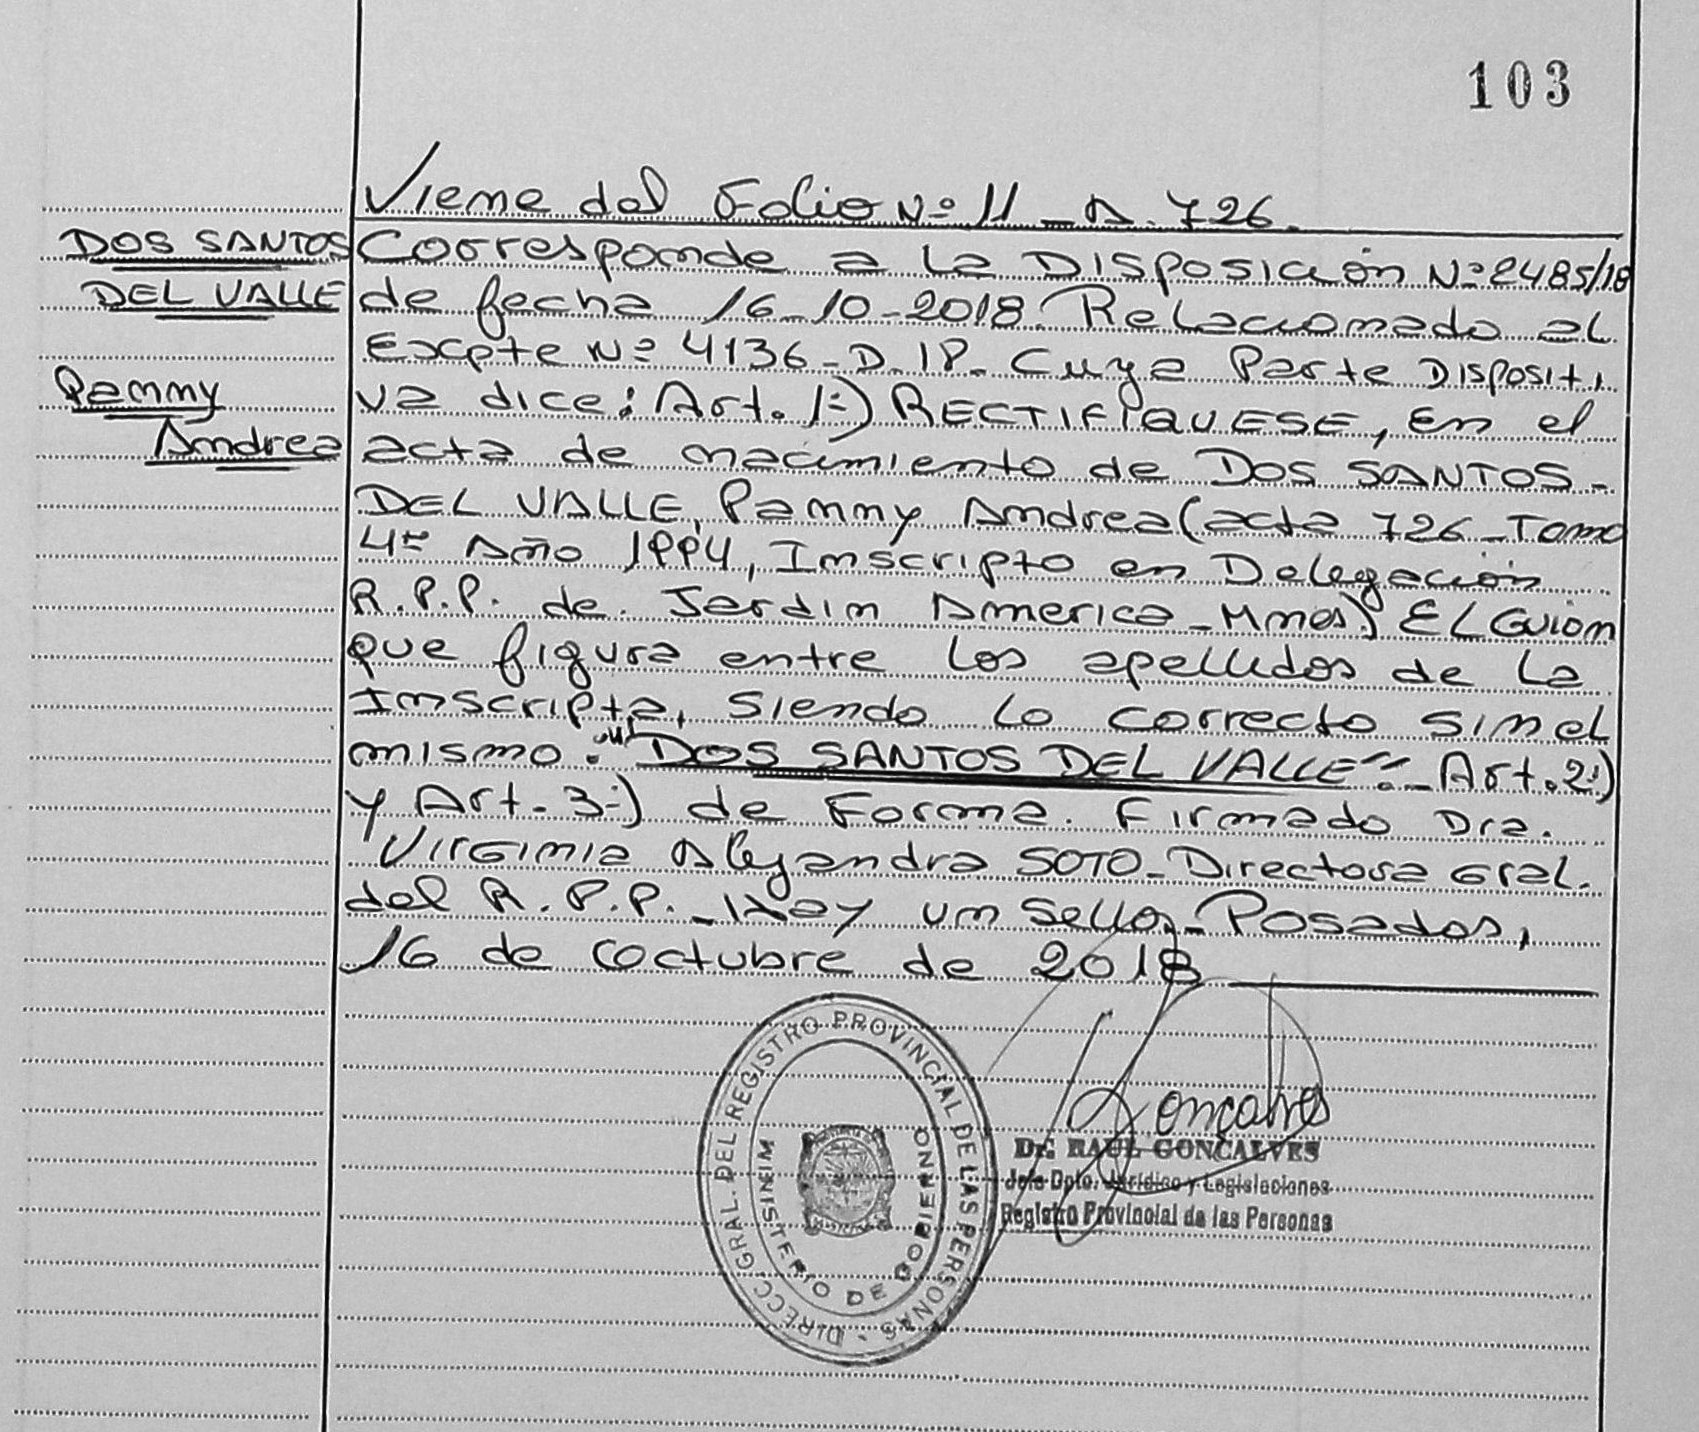 103
Viene del Folio Nº 11 - A. 726.
DOS SANTOS
DEL VALLE
Pammy
Andrea
Corresponde a la Disposición Nº 2485/18
de fecha 16-10-2018. Relacionado al
Expte Nº 4136-D.18. Cuya Parte Dispositi
va dice: Art. 1º) RECTIFIQUESE, en el
acta de nacimiento de DOS SANTOS-
DEL VALLE, Pammy Andrea (acta 726 - Tomo
4º Año 1994, Inscripto en Delegación
R.P.P. de Jardin America - Mnes) EL Guion
que figura entre los apellidos de la
Inscripta, siendo lo correcto sin el
mismo: "DOS SANTOS DEL VALLE". - Art. 2º)
y Art. 3º) de Forma. Firmado Dra.
Virginia Alejandra SOTO - Directora Gral.
del R.P.P. - Hay un sello. - Posadas,
16 de Octubre de 2018
DIRECC. GRAL. DEL REGISTRO PROVINCIAL DE LAS PERSONAS -
MINISTERIO DE GOBIERNO
Goncalves
Dr. RAUL GONCALVES
Jefe Dpto. Jurídico y Legislaciones
Registro Provincial de las Personas